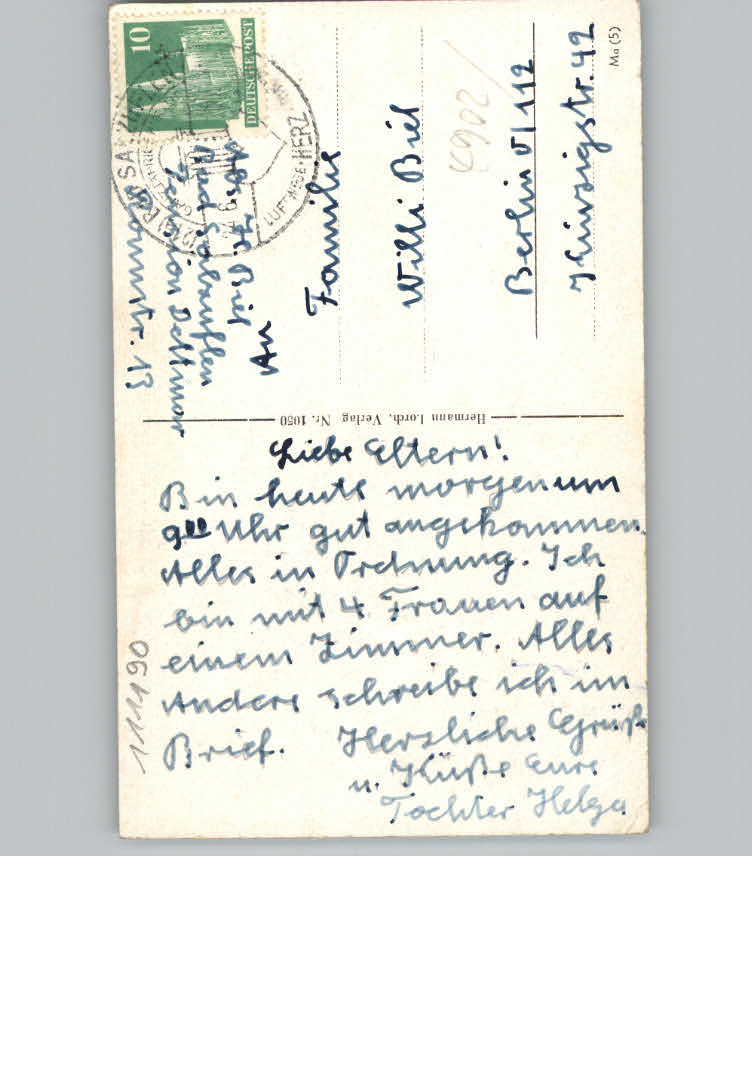 Liebe Eltern!
Bin heute morgen um
9 00 Uhr gut angekommen.
Alles in Ordnung. Ich
bin mit 4 Frauen auf
einem Zimmer. Alles
Andere schreibe ich im
Brief. Herzliche Grüße
u. Küße Eure
Tochter Helga
111190
Hermann Lorch, Verlag Nr. 1050
Abs. H. Biel
Bad Salzuflen
Pension Dettmar
An
Familie
Willi Biel
Berlin O/112
4902/
Ma (5)
10
DEUTSCHE POST
BAD SA
HERZ